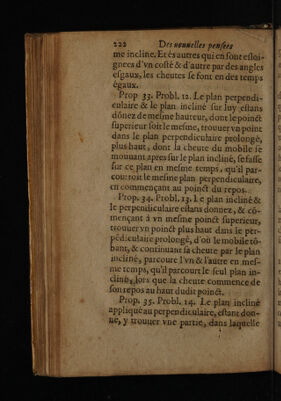 222 Des nouuelles pensées
me incline. Et és autres qui en sont esloi-
gnees d'vn costé & d'autre par des angles
esgaux, les cheutes se font en des temps
égaux.
Prop. 33. Probl. 12. Le plan perpendi-
culaire & le plan incliné sur luy estans
dónez de mesme hauteur, dont le poinct
superieur soit le mesme, trouuer vn point
dans le plan perpendiculaire prolongé,
plus haut, dont la cheute du mobile se
mouuant apres sur le plan incliné, se fasse
sur ce plan en mesme temps, qu'il par-
courroit le mesme plan perpendiculaire,
en commençant au poinct du repos.
Prop. 34. Probl. 13. Le plan incliné &
le perpendiculaire estans donnez, & có-
mençant à vn mesme poinct superieur,
trouuer vn poinct plus haut dans le per-
pédiculaire prolongé, d'on le mobile tó-
bant, & continuant sa cheute par le plan
incliné, parcoure l'vn & l'autre en mes-
me temps, qu'il parcourt le seul plan in-
cliné, lors que la cheute commence de
son repos au haut dudit poinct.
Prop. 35. Probl. 14. Le plan incliné
appliqué au perpendiculaire, estant don-
ne, y trouuer vne partie, dans laquelle